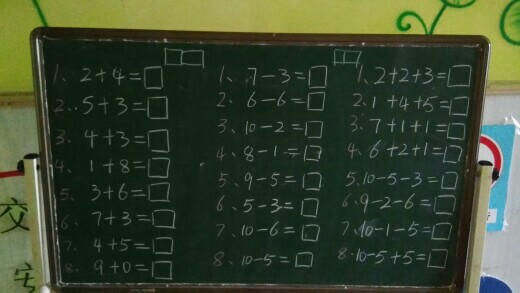 1、2+4=□
2、5+3=□
3、4+3=□
4、1+8=□
5、3+6=□
6、7+3=□
7、4+5=□
8、9+0=□
1、7-3=□
2、6-6=□
3、10-2=□
4、8-1=□
5、9-5=□
6、5-3=□
7、10-6=□
8、10-5=□
1、2+2+3=□
2、1+4+5=□
3、7+1+1=□
4、6+2+1=□
5、10-5-3=□
6、9-2-6=□
7、10-1-5=□
8、10-5+5=□
交